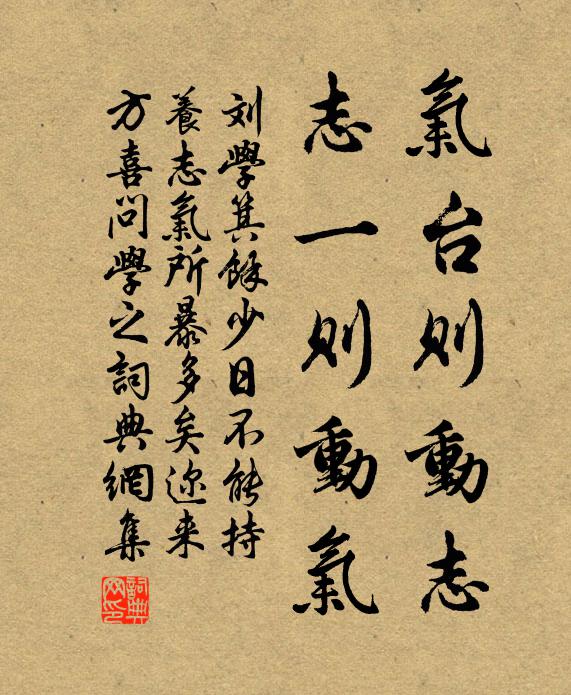 氣台则動志
志一则動氣
刘學箕餘少日不能持
養志氣所暴多矣迩来
方喜問學之詞典網集
詞典
网印